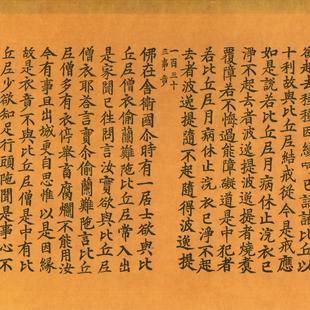 欲起去種種因緣呵已語諸比丘以
十利故與比丘尼結戒從今是戒應
如是說若比丘尼月病休止浣衣已
淨不起去者波逸提波逸提者燒煑
覆障若不悔過能障礙道是中犯者
若比丘尼月病休止浣衣已淨不起
去者波逸提隨不起隨得波逸提
一百三十
三事竟
佛在舍衛國尒時有一居士欲與比
丘尼僧衣偷蘭難陁比丘尼常入出
是家聞已往問言汝實欲與比丘尼
僧衣耶答言實尒偷蘭難陁言比丘
尼僧多有衣停舉畜腐爛不能用汝
今有事且出城更自思惟以是因緣
故是衣竟不與比丘尼僧是中有比
丘尼少欲知足行頭陁聞是事心不